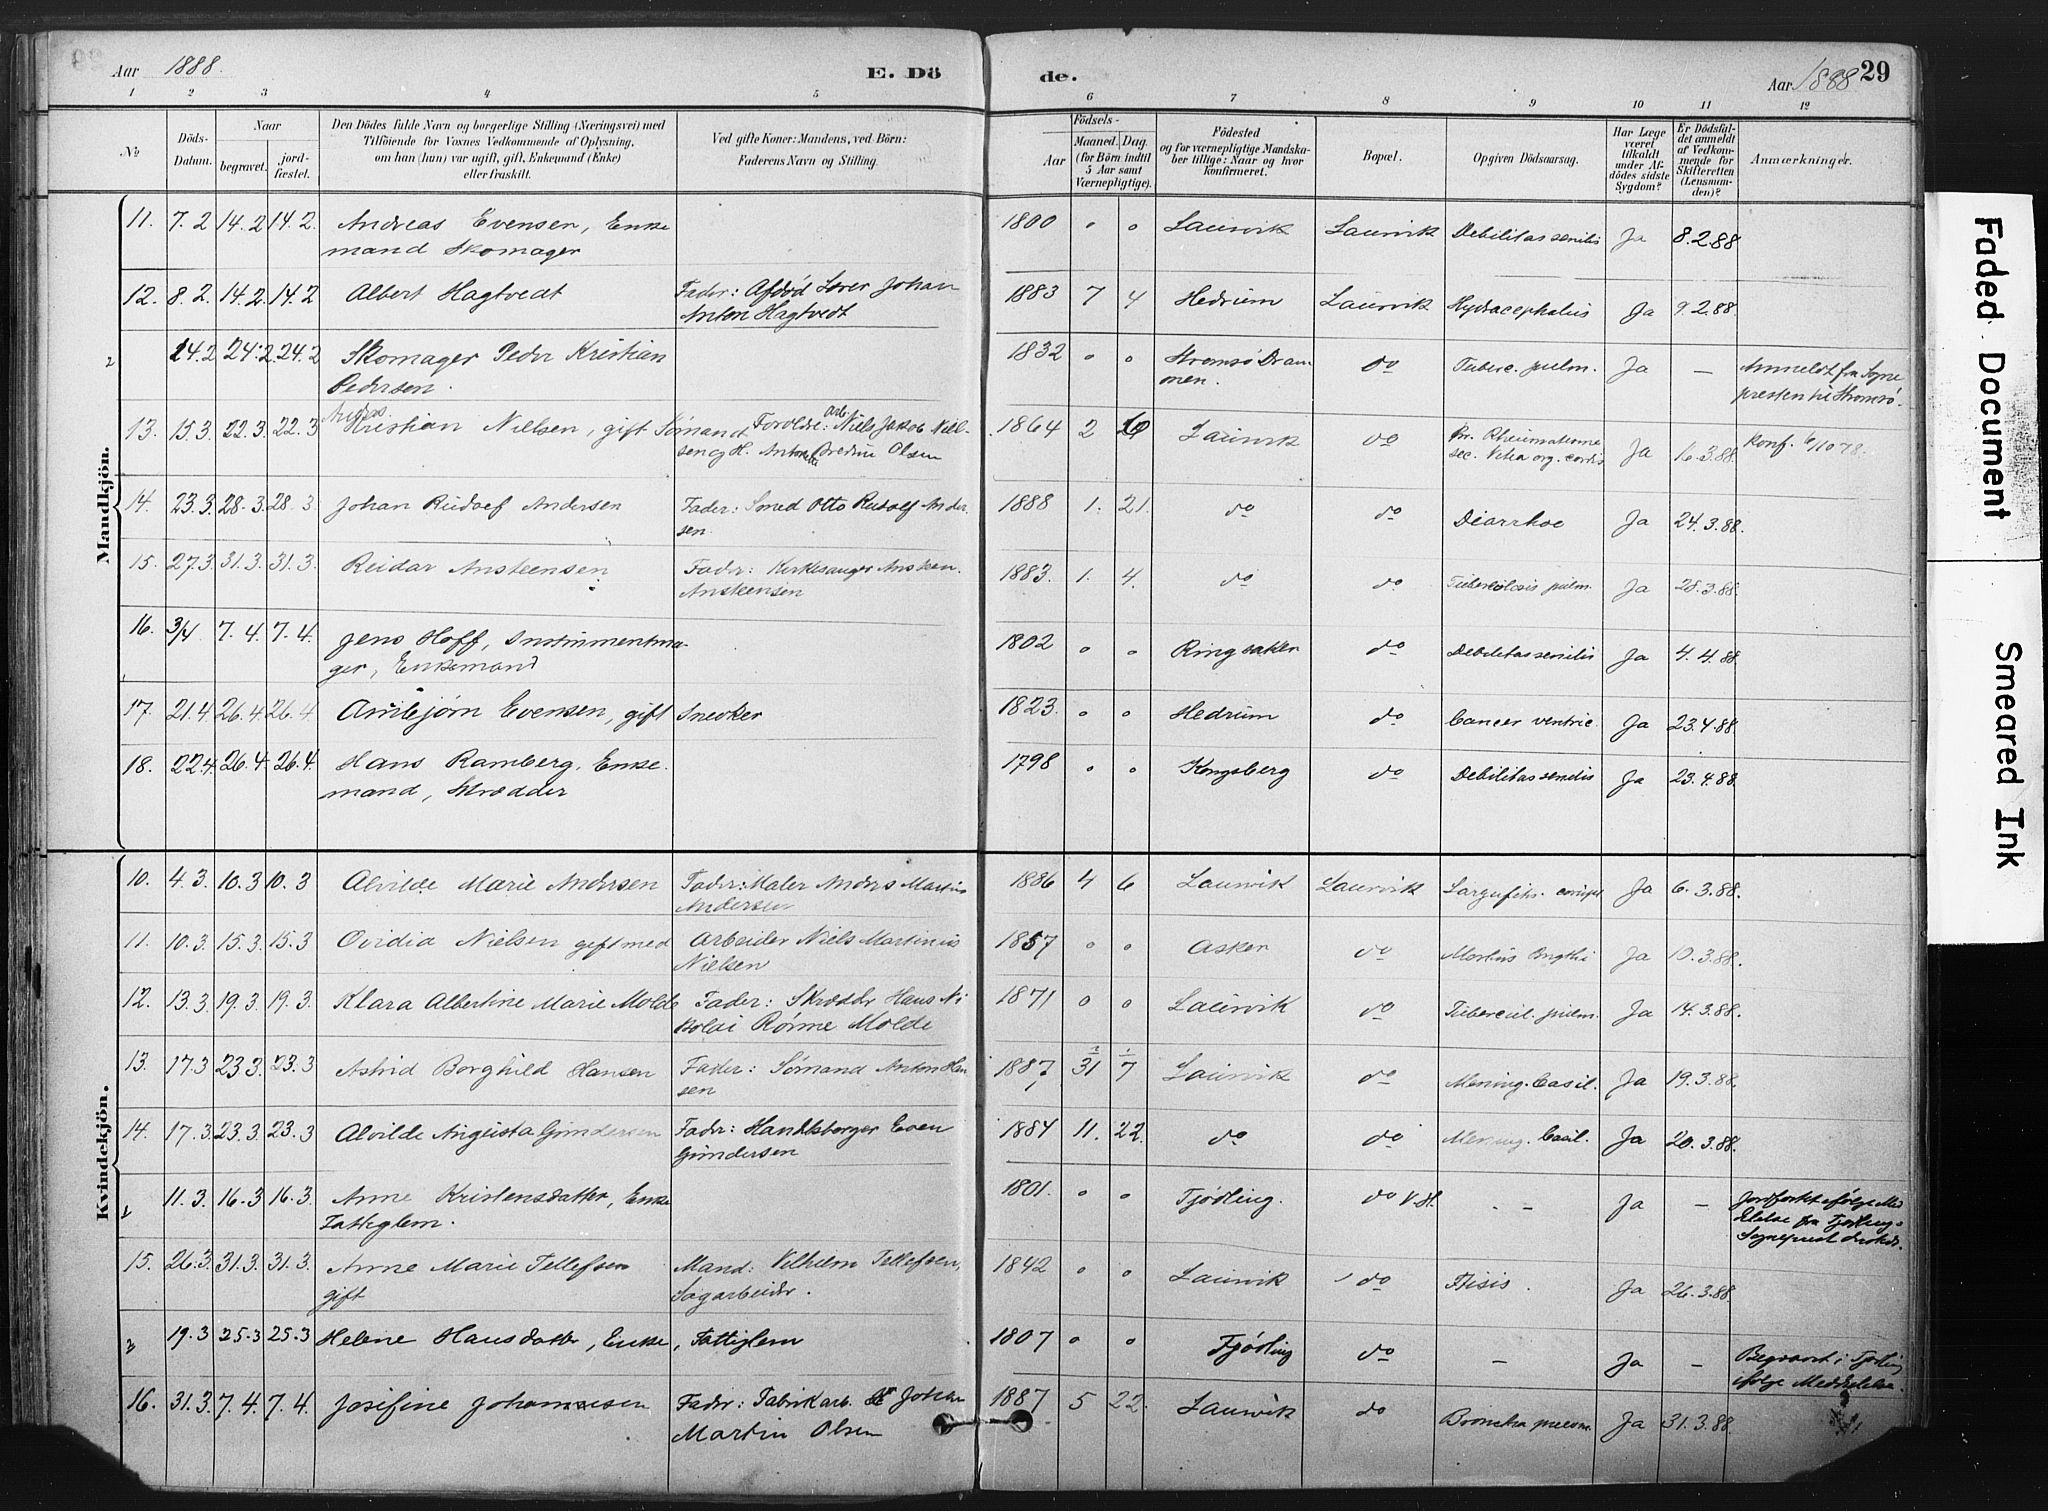 Aar 1888. E. Dö de. Aar 1888 29
1 2 3 4 5 6 7 8 9 10 11 12
No Döds-Datum. Naar begravet. jord-fæstet. Den Dödes fulde Navn og borgerlige Stilling (Næringsvei) med Tilföiende for Voxnes Vedkommende af Oplysning, om han (hun) var ugift, gift, Enkemand (Enke) eller fraskilt. Ved gifte Koner: Mandens, ved Börn: Faderens Navn og Stilling. Födsels- Aar Maaned. Dag. (for Börn indtil 5 Aar samt Værnepligtige). Födested og for værnepligtige Mandska-ber tillige: Naar og hvor konfirmeret. Bopæl. Opgiven Dödsaarsag. Har Læge været tilkaldt under Af-dödes sidste Sygdom? Er Dödsfal-det anmeldt af Vedkom-mende for Skifteretten (Lensman-den)? Anmærkninger.
Mandkjön.
11. 7.2 14.2 14.2. Andreas Evensen, Enke 1800 o o Laurvik Laurvik Debilitas senilis Ja 8.2.88
mand Skomager
12. 8.2. 14.2. 14.2 Albert Hagtvedt Fader: Afdød Johan 1883 7 4 Hedrum Laurvik Hydrocephalus Ja 9.2.88.
Anton Hagtvedt
2 14.2 24.2 24.2 Skomager Peder Kristian 1832 o o Strømsø Dram do Tuberc. pulm. Ja — Anmeldt fra Sogne
Pedersen. men. presten til Strømsø.
13. 15.3. 22.3. 22.3 Kristian Nielsen, gift Sømand Foreldre: arb. Niels Jakob Niel- 1864 2 Laurvik do Rheumatisme Ja 16.3.88 Konf. 6/10 78.
sen og H. Olsen sec. Vitia org. cordis
14. 23.3. 28.3. 28.3 Johan Rudolf Andersen Fader: Smed Otto Rudolf Ander 1888 1. 21. do do Diarrhoe Ja 24.3.88.
sen.
15. 27.3 31.3. 31.3. Reidar Ansteensen Fader: Kirkesanger Ansten 1883. 1. 4. do do Tuberculosis pulm. Ja 28.3.88.
Ansteensen
16. 3/4. 7.4. 7.4. Jens Hoff, Instrumentma- 1802 o o Ringsaker do Debilitas senilis Ja 4.4.88
ger, Enkemand
17. 21.4. 26.4. 26.4 Evensen, gift Snedker 1823. o o Hedrum do Cancer ventric. Ja 23.4.88
18. 22.4. 26.4 26.4. Hans Ramberg, Enke- 1798 o o Kongsberg do Debilitas senilis Ja 23.4.88.
mand, Skrædder
Kvindekjön.
10. 4.3. 10.3 10.3 Alvilde Marie Andersen Fader: Maler Anders Martin 1886 4 6 Laurvik Laurvik Ja 6.3.88.
Andersen
11. 10.3. 15.3. 15.3 Ovidia Nielsen gift med Arbeider Niels Martinius 1857 o o Asker do Morbus Brigthi Ja 10.3.88.
Nielsen
12. 13.3 19.3. 19.3. Klara Albertine Marie Molde Fader: Skrædder Hans Ni 1871 o o Laurvik do Tubercul. pulm. Ja 14.3.88.
kolai Rønne Molde
13. 17.3 23.3. 23.3 Astrid Borghild Hansen Fader: Sømand Anton Han 1887 31 7 Laurvik do Mening. basil. Ja 19.3.88
sen
14. 17.3. 23.3. 23.3 Alvilde Augusta Gundersen Fader: Even 1884 11. 22. do do Mening. basil. Ja 20.3.88.
Gundersen
2 11.3. 16.3 16.3 Anne Kristensdatter, Enke 1801. o o Tjødling. do - - Ja — Jordfæstet ifølge Med
Fattiglem. delelse fra Tjødlings
Sogneprest
15. 26.3. 31.3. 31.3. Anne Marie Tellefsen Mand: Vilhelm Tellefsen, 1842 o o Laurvik do Ftisis. Ja 26.3.88.
gift Sagarbeider.
2 19.3 25.3 25.3 Helene Hansdatter, Enke, Fattiglem 1807 o o Tjødling do — Ja — Begravet i Tjødling
ifølge Meddelelse.
16. 31.3. 7.4. 7.4. Josefine Johannesen Fader: Fabrikarb. Johan 1887 5 22. Laurvik do Broncho pneum. Ja 31.3.88.
Martin Olsen
Faded Document
Smeared Ink